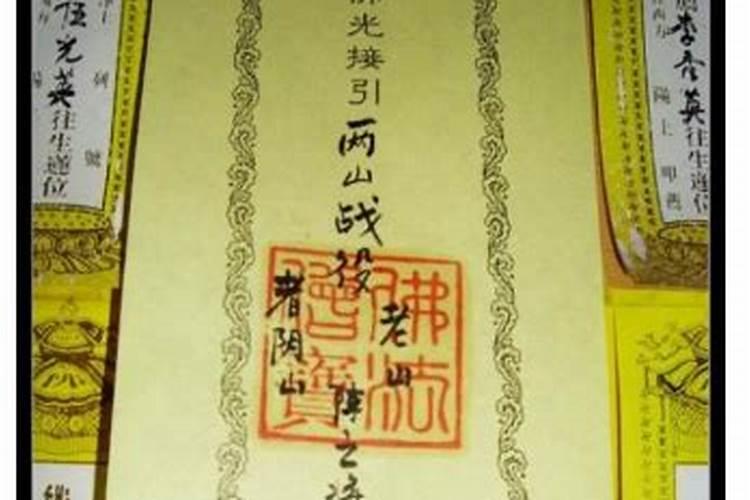 李
英往生蓮位
陽上 叩薦
佛光接引两山战役
老山
者阴山
陣亡
佛法
僧寶
光英往生蓮位